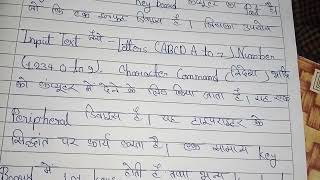 Key board कंप्यूटर का
जो कि एक इनपुट डिवाइस है। जिसका उपयोग
Input Text जैसे - letters (ABCD A to z) Number
(1234 0 to 9), Character Command (निर्देश) आदि
को कंप्यूटर में देने के लिए किया जाता है। यह एक
Peripheral डिवाइस है। यह टाइपराइटर के
सिद्धांत पर कार्य करता है। एक सामान्य key
Board में keys होती हैं